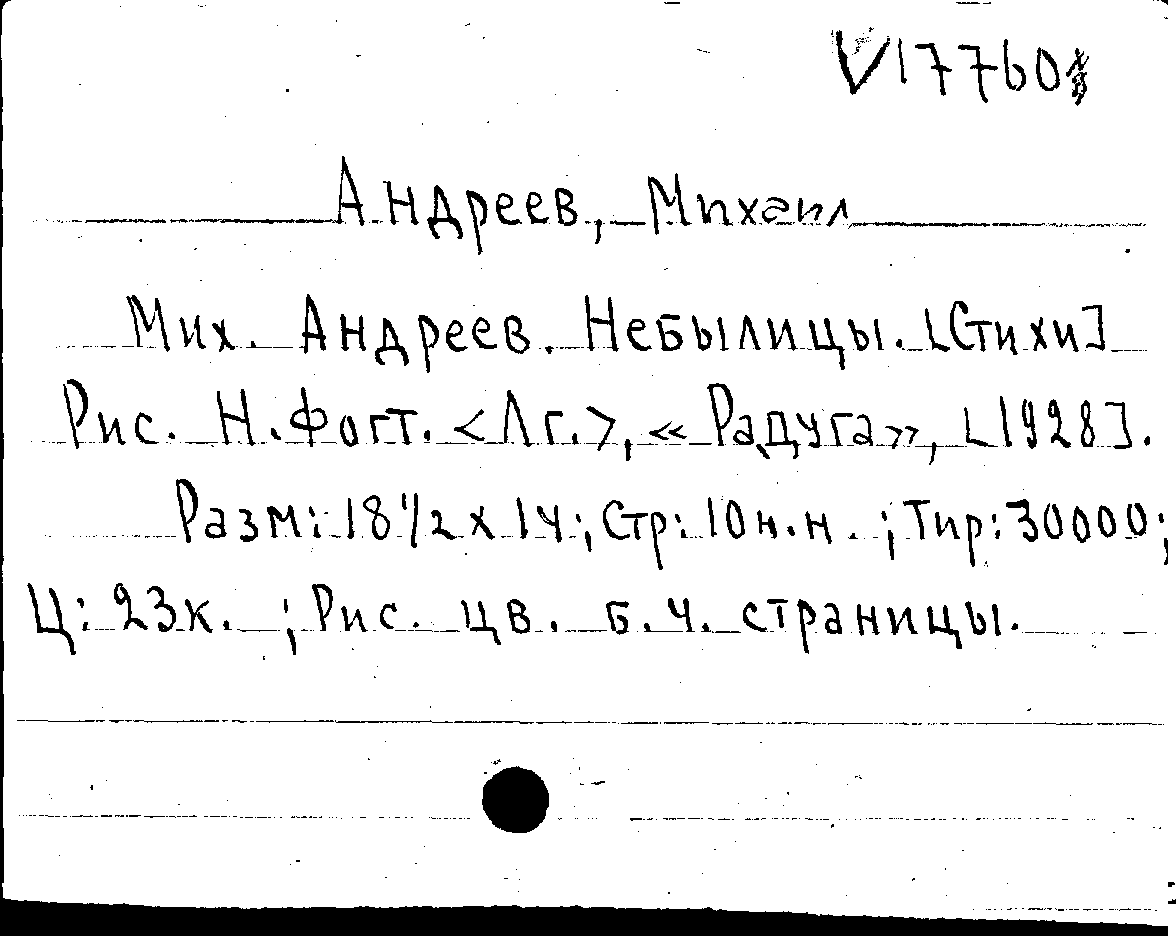 V17760
Андреев, Михаил
Мих. Андреев. Небылицы. [Стихи]
Рис. Н. Фогт. <Лг.>, «Радуга», [1928].
Разм: 18 1/2 x 14; Стр: 10 н.н. ; Тир: 30000;
Ц: 23к. ; Рис. цв. б.ч. страницы.